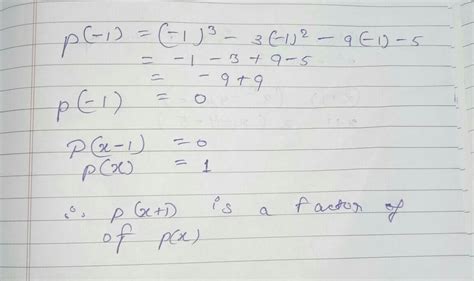 p(-1) = (-1)³ - 3(-1)² - 9(-1) - 5
= -1 - 3 + 9 - 5
= - 9 + 9
p(-1) = 0
P(x-1) = 0
p(x) = 1
∴ p(x+1) is a factor of
of p(x)